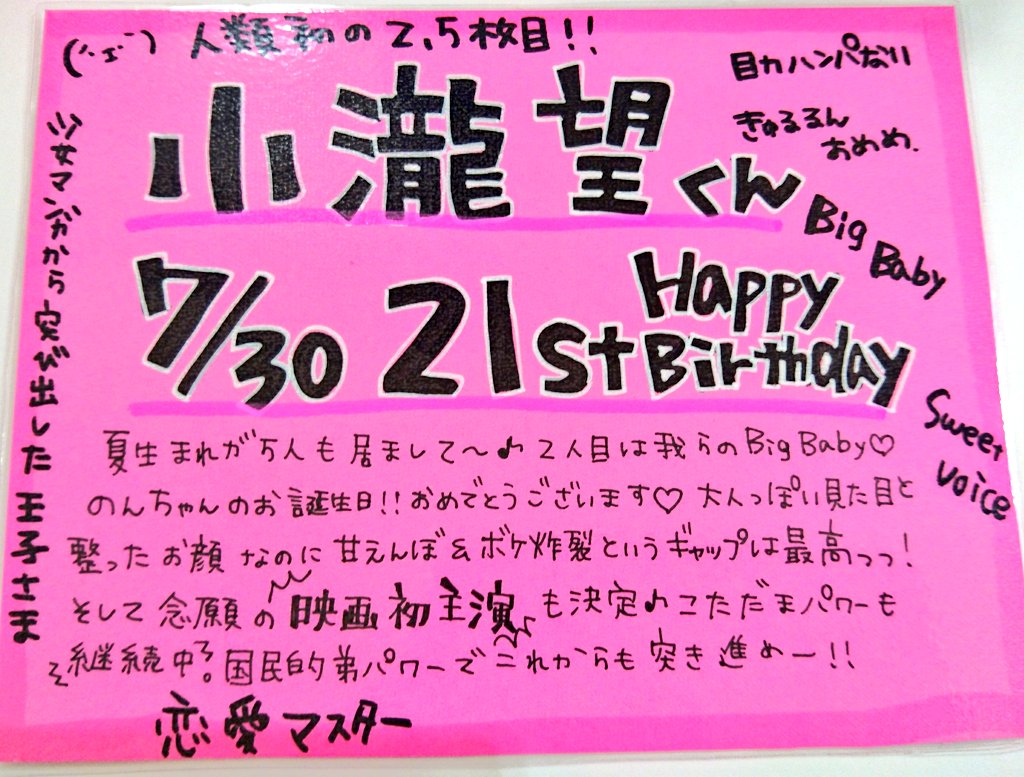 (´･ｪ･`) 人類初の2.5枚目!!
目力ハンパない
きゅるるん
おめめ.
小瀧望くん
Big Baby
7/30 21st Happy Birthday
少女マンガから突び出した王子さま
Sweet
voice
夏生まれが5人も居まして〜♪2人目は我らのBig Baby♡
のんちゃんのお誕生日!!おめでとうございます♡大人っぽい見た目と
整ったお顔なのに甘えんぼ&ボケ炸裂というギャップは最高っっ!
そして念願の映画初主演も決定♪こただまパワーも
継続中?。国民的弟パワーでこれからも突き進めー!!
恋愛マスター